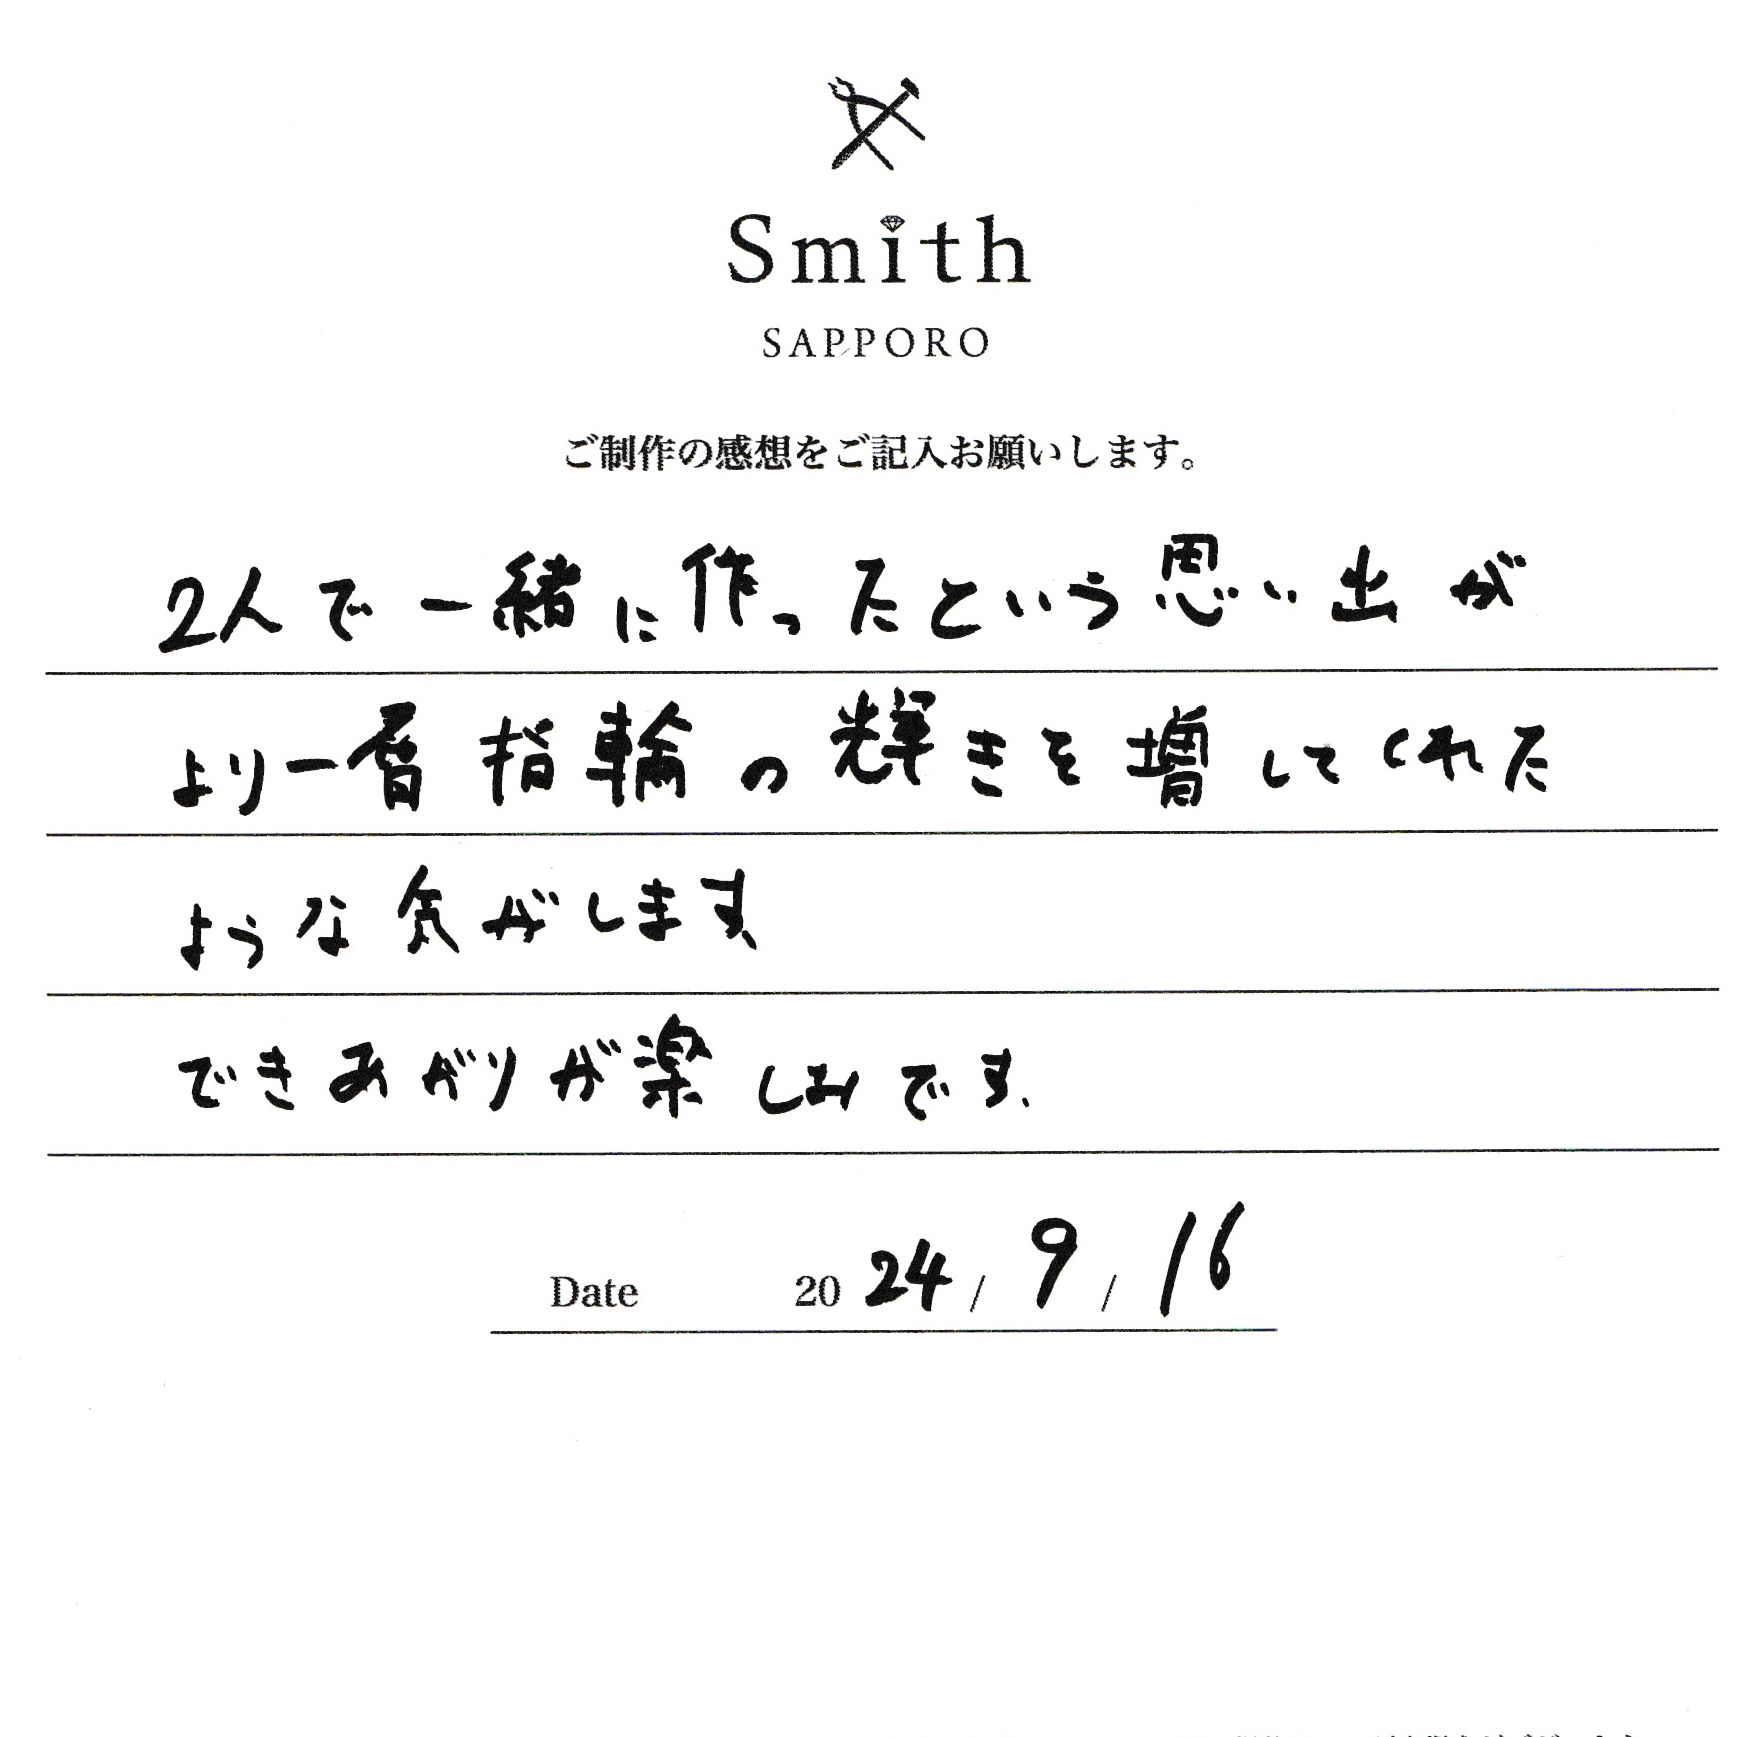 Smith
SAPPORO
ご制作の感想をご記入お願いします。
2人で一緒に作ったという思い出が
より一層指輪の輝きを増してくれた
ような気がします、
できあがりが楽しみです.
Date 2024 / 9 / 16